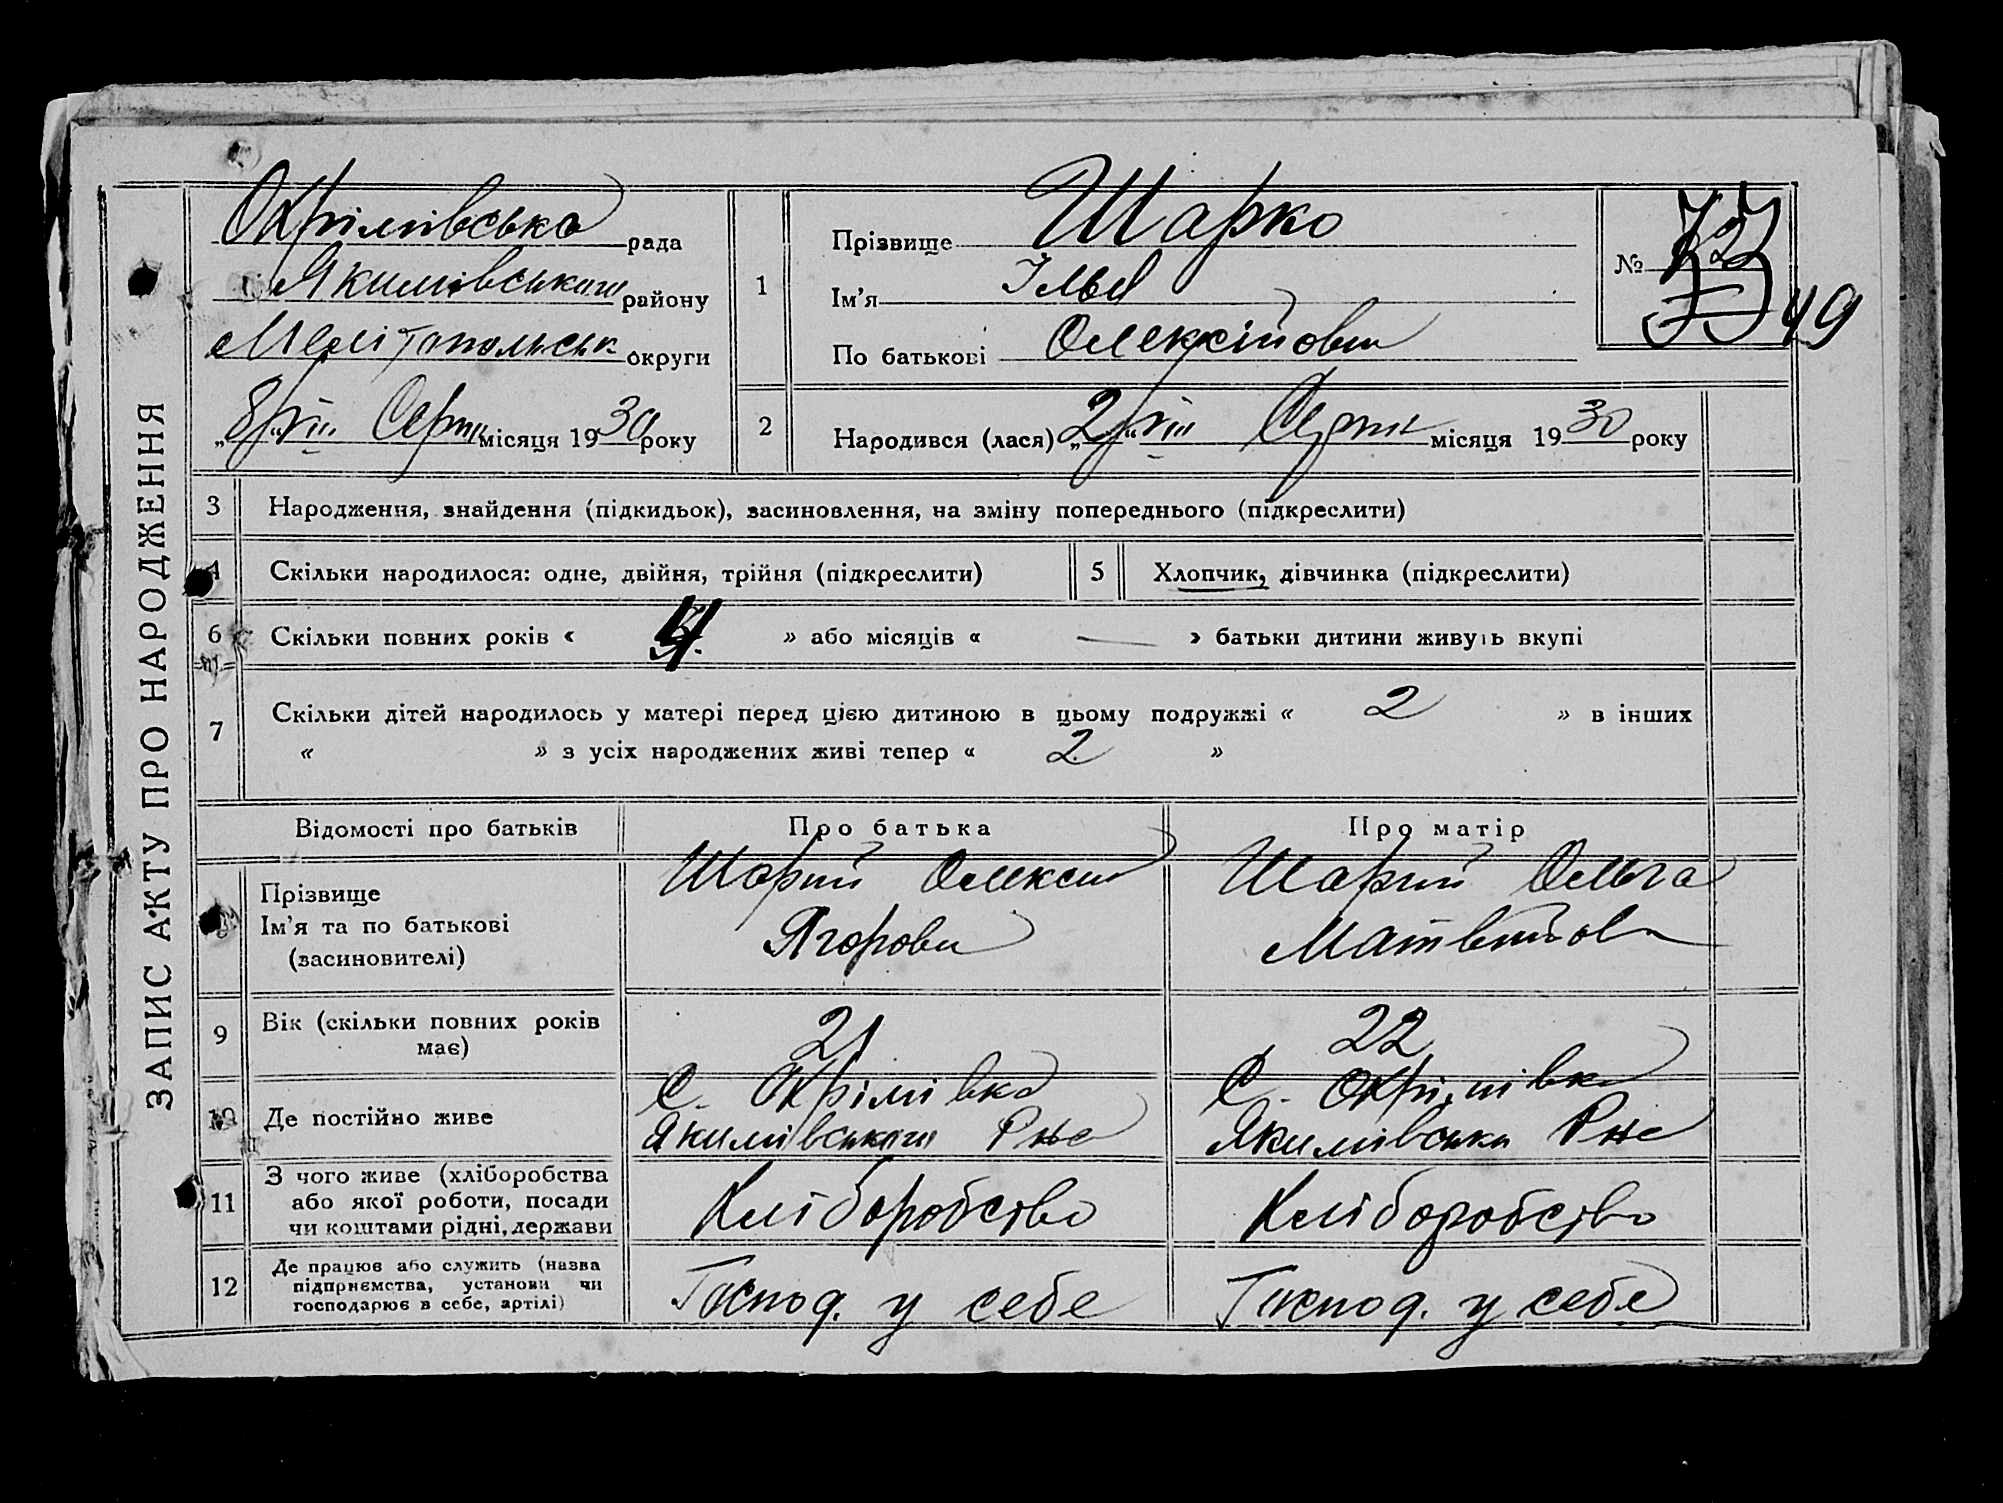 ЗАПИС АКТУ ПРО НАРОДЖЕННЯ
Охрімівська рада
Якимівського району
Мелітопольськ округи
„8/VIII“ Серпн місяця 1930 року
1
Прізвище Шарко
Ім'я Ілья
По батькові Олексійови
№
49
2
Народився (лася) „2/VIII“ Серпн місяця 1930 року
3
Народження, знайдення (підкидьок), засиновлення, на зміну попереднього (підкреслити)
4
Скільки народилося: одне, двійня, трійня (підкреслити)
5
Хлопчик, дівчинка (підкреслити)
6
Скільки повних років « 4 » або місяців « — » батьки дитини живуть вкупі
7
Скільки дітей народилось у матері перед цією дитиною в цьому подружжі « 2 » в інших
« » з усіх народжених живі тепер « 2 »
Відомості про батьків
Про батька
Про матір
8
Прізвище
Ім'я та по батькові
(засиновителі)
Шарий Олексій
Ягорови
Шарий Ольга
Матвійов
9
Вік (скільки повних років
має)
21
22
10
Де постійно живе
С. Охрімівка
Якимівського Рне
С. Охрімівка
Якимівськи Рне
11
З чого живе (хліборобства
або якої роботи, посади
чи коштами рідні, держави
Хліборобство
Хліборобство
12
Де працює або служить (назва
підприємства, установи чи
господарює в себе, артілі)
Господ. у себе
Господ. у себе